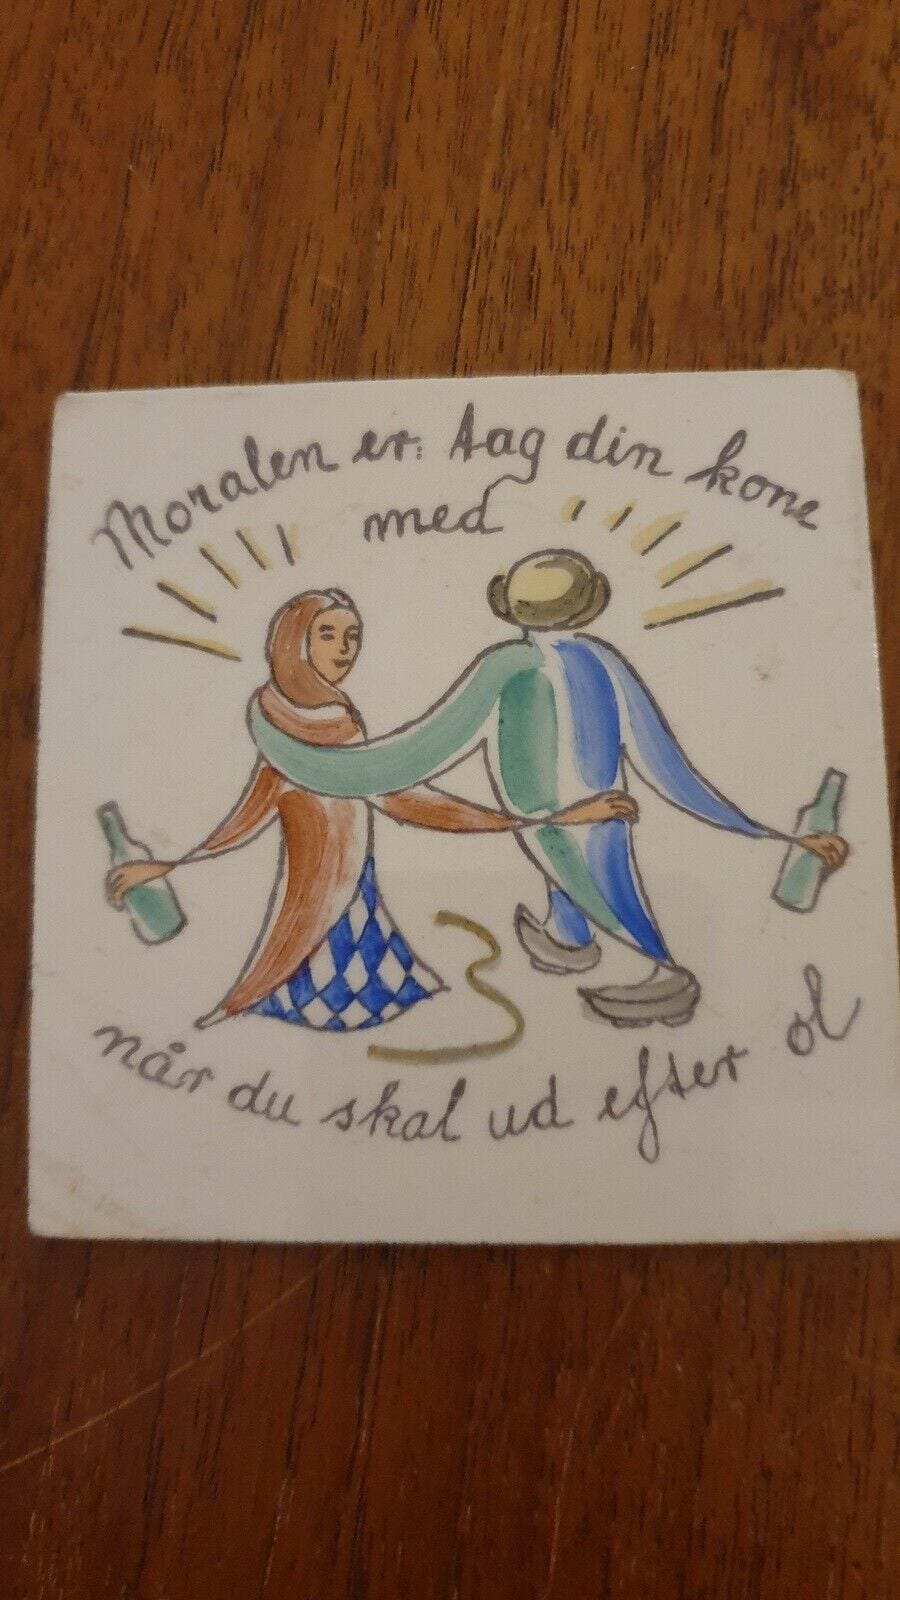 Moralen er: tag din kone
med
når du skal ud efter øl